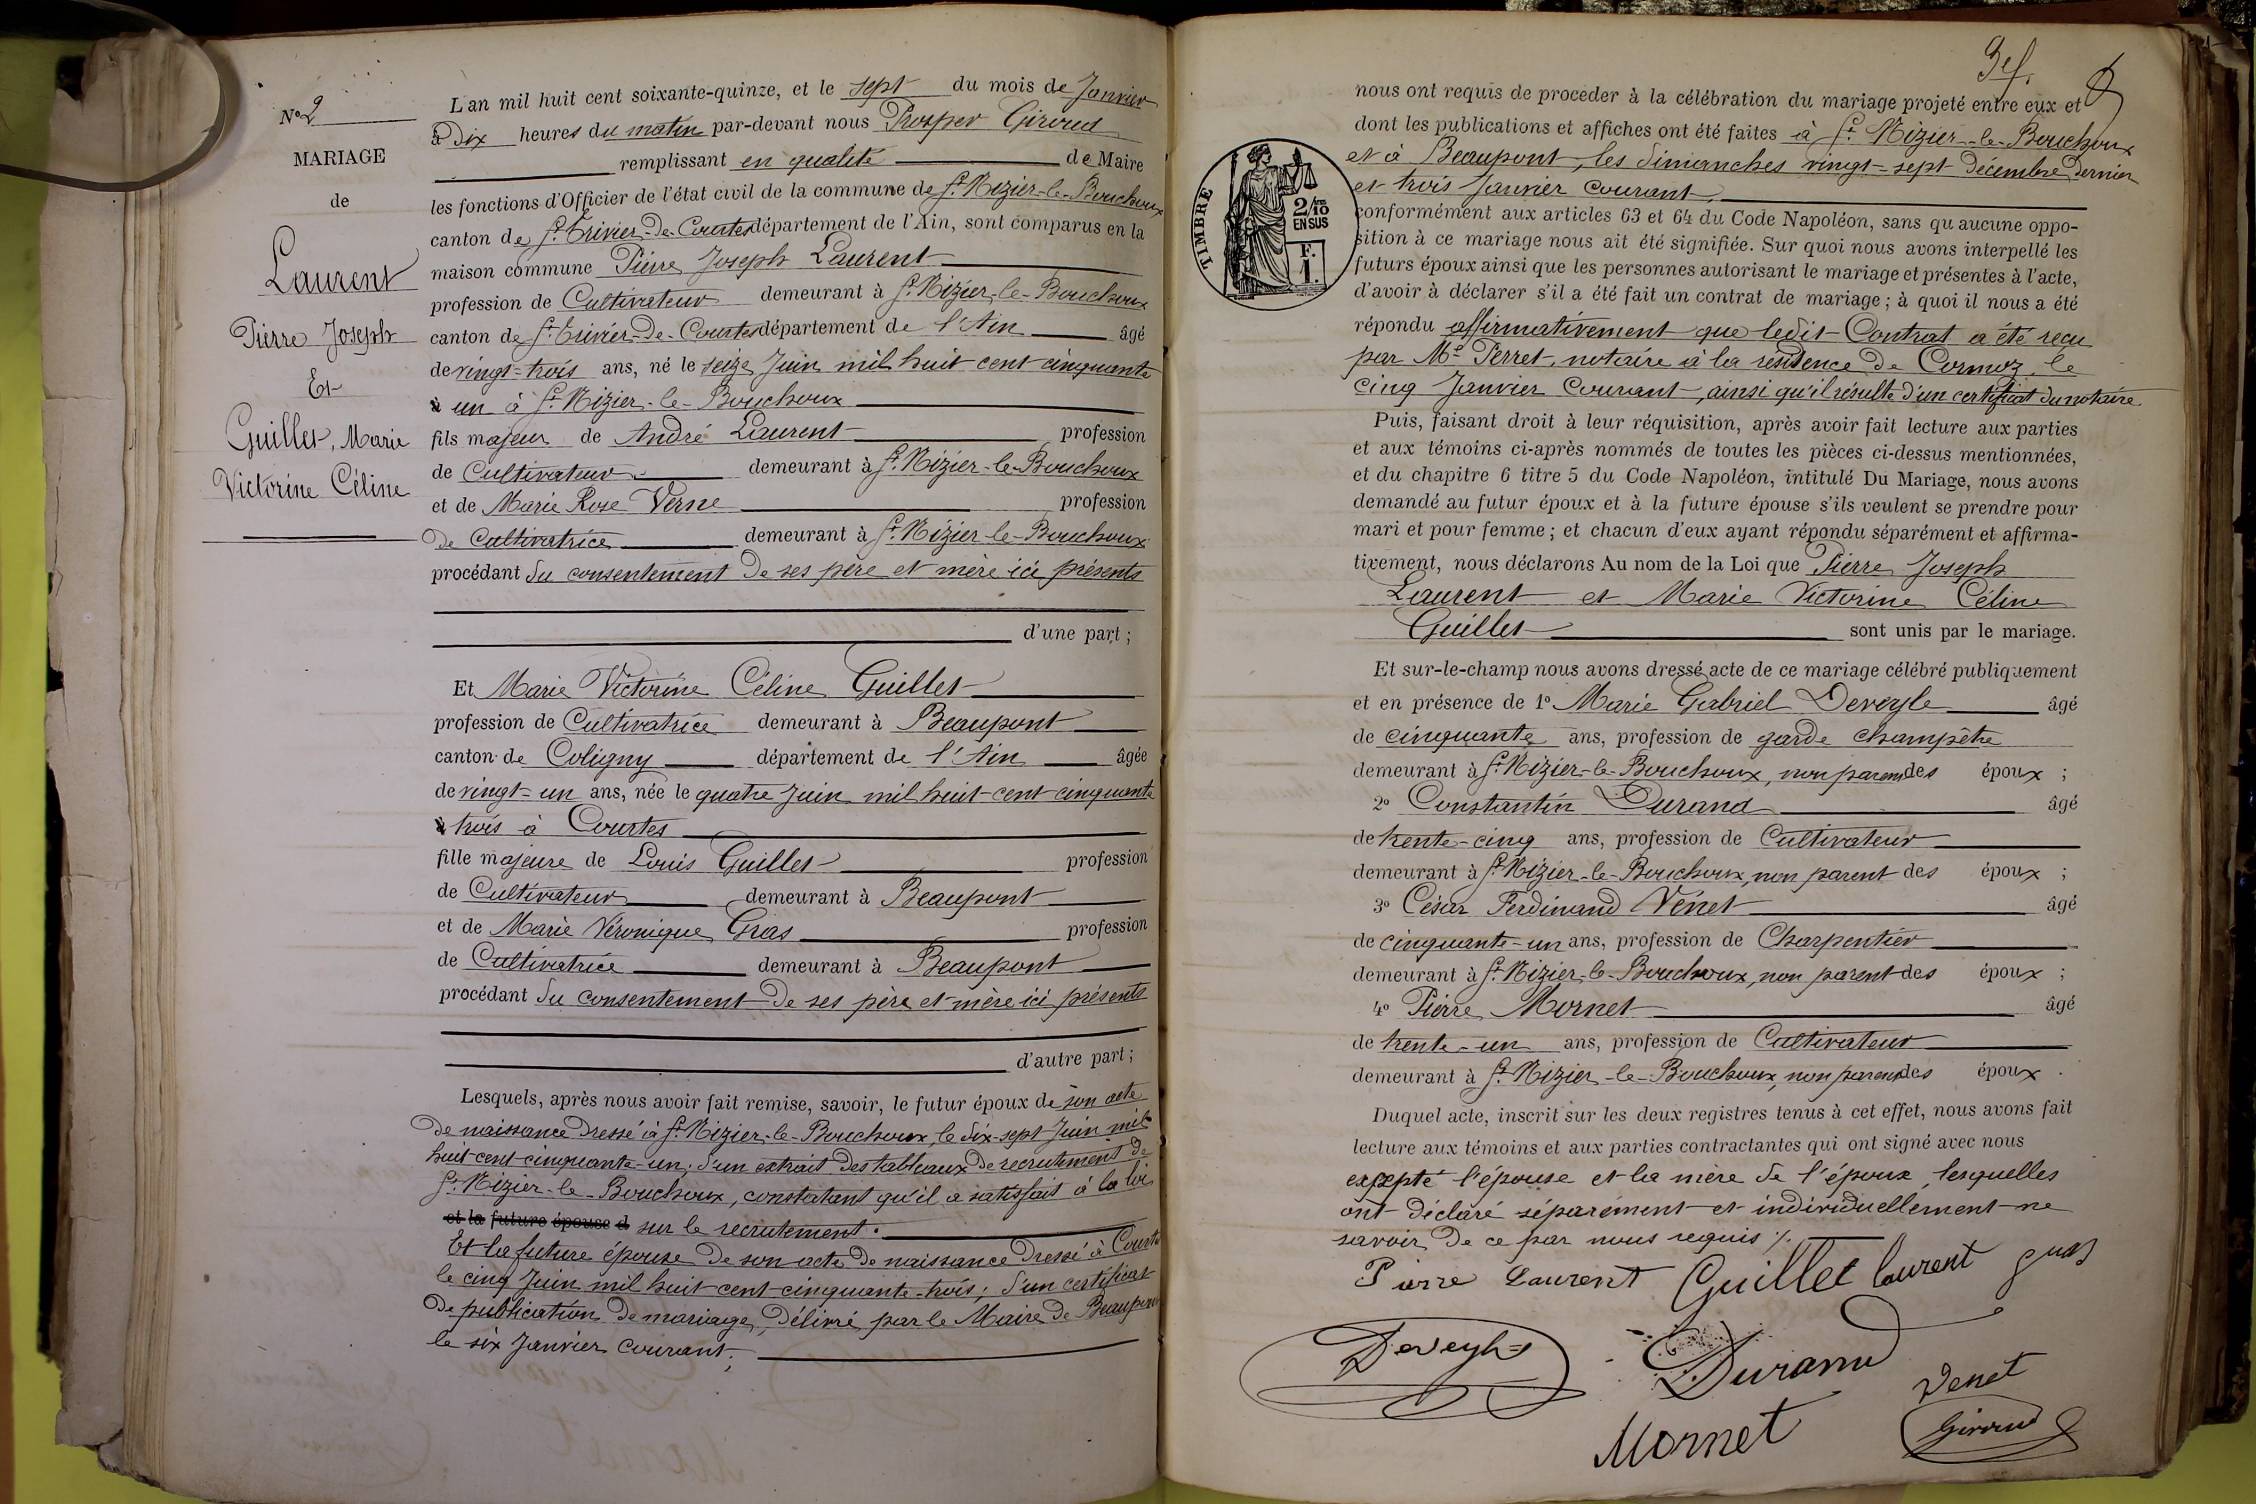 N° 2
MARIAGE
de
Laurent
Pierre Joseph
Et
Guillet, Marie
Victorine Céline
L'an mil huit cent soixante-quinze, et le sept du mois de Janvier
à Dix heures du matin par-devant nous Prosper Giroud
remplissant en qualité de Maire
les fonctions d'Officier de l'état civil de la commune de St Nizier-le-Bouchoux
canton de St Trivier-de-Courtes département de l'Ain, sont comparus en la
maison commune Pierre Joseph Laurent
profession de Cultivateur demeurant à St Nizier-le-Bouchoux
canton de St Trivier-de-Courtes département de l'Ain âgé
de vingt-trois ans, né le seize Juin mil huit cent cinquante
à un à St Nizier-le-Bouchoux
fils majeur de André Laurent profession
de Cultivateur demeurant à St Nizier-le-Bouchoux
et de Marie Rose Verne profession
de Cultivatrice demeurant à St Nizier-le-Bouchoux
procédant du consentement de ses père et mère ici présents
d'une part ;
Et Marie Victorine Céline Guillet
profession de Cultivatrice demeurant à Beaupont
canton de Coligny département de l'Ain âgée
de vingt-un ans, née le quatre Juin mil huit-cent-cinquante
à trois à Courtes
fille majeure de Louis Guillet profession
de Cultivateur demeurant à Beaupont
et de Marie Véronique Gras profession
de Cultivatrice demeurant à Beaupont
procédant du consentement de ses père et mère ici présents
d'autre part ;
Lesquels, après nous avoir fait remise, savoir, le futur époux de son acte
de naissance dressé à St Nizier-le-Bouchoux, le dix-sept Juin mil
huit-cent-cinquante-un ; d'un extrait des tableaux de recrutement de
St Nizier-le-Bouchoux, constatant qu'il a satisfait à la loi
et la future épouse d sur le recrutement.
Et la future épouse de son acte de naissance dressé à Courtes
le cinq Juin mil huit-cent-cinquante-trois ; d'un certificat
de publication de mariage, délivré par le Maire de Beaupont
le six Janvier courant ;
nous ont requis de procéder à la célébration du mariage projeté entre eux et
dont les publications et affiches ont été faites à St Nizier-le-Bouchoux
et à Beaupont, les dimanches vingt-sept décembre dernier
et trois Janvier courant,
TIMBRE
2/10
EN SUS
F.
1.
conformément aux articles 63 et 64 du Code Napoléon, sans qu'aucune oppo-
sition à ce mariage nous ait été signifiée. Sur quoi nous avons interpellé les
futurs époux ainsi que les personnes autorisant le mariage et présentes à l'acte,
d'avoir à déclarer s'il a été fait un contrat de mariage ; à quoi il nous a été
répondu affirmativement que ledit Contrat a été reçu
par Me Perret, notaire à la résidence de Cormoz, le
cinq Janvier courant, ainsi qu'il résulte d'un certificat du notaire.
Puis, faisant droit à leur réquisition, après avoir fait lecture aux parties
et aux témoins ci-après nommés de toutes les pièces ci-dessus mentionnées,
et du chapitre 6 titre 5 du Code Napoléon, intitulé Du Mariage, nous avons
demandé au futur époux et à la future épouse s'ils veulent se prendre pour
mari et pour femme ; et chacun d'eux ayant répondu séparément et affirma-
tivement, nous déclarons Au nom de la Loi que Pierre Joseph
Laurent et Marie Victorine Céline
Guillet sont unis par le mariage.
Et sur-le-champ nous avons dressé acte de ce mariage célébré publiquement
et en présence de 1° Marie Gabriel Deveyle âgé
de cinquante ans, profession de garde champêtre
demeurant à St Nizier-le-Bouchoux, non parent des époux ;
2° Constantin Durand âgé
de trente-cinq ans, profession de Cultivateur
demeurant à St Nizier-le-Bouchoux, non parent des époux ;
3° César Ferdinand Vénet âgé
de cinquante-un ans, profession de Charpentier
demeurant à St Nizier-le-Bouchoux, non parent des époux ;
4° Pierre Mornet âgé
de trente-un ans, profession de Cultivateur
demeurant à St Nizier-le-Bouchoux, non parent des époux.
Duquel acte, inscrit sur les deux registres tenus à cet effet, nous avons fait
lecture aux témoins et aux parties contractantes qui ont signé avec nous
excepté l'épouse et la mère de l'époux, lesquelles
ont déclaré séparément et individuellement ne
savoir de ce par nous requis ./.
Pierre Laurent Guillet laurent gras
Deveyle
Durand
Venet
Mornet
Giroud